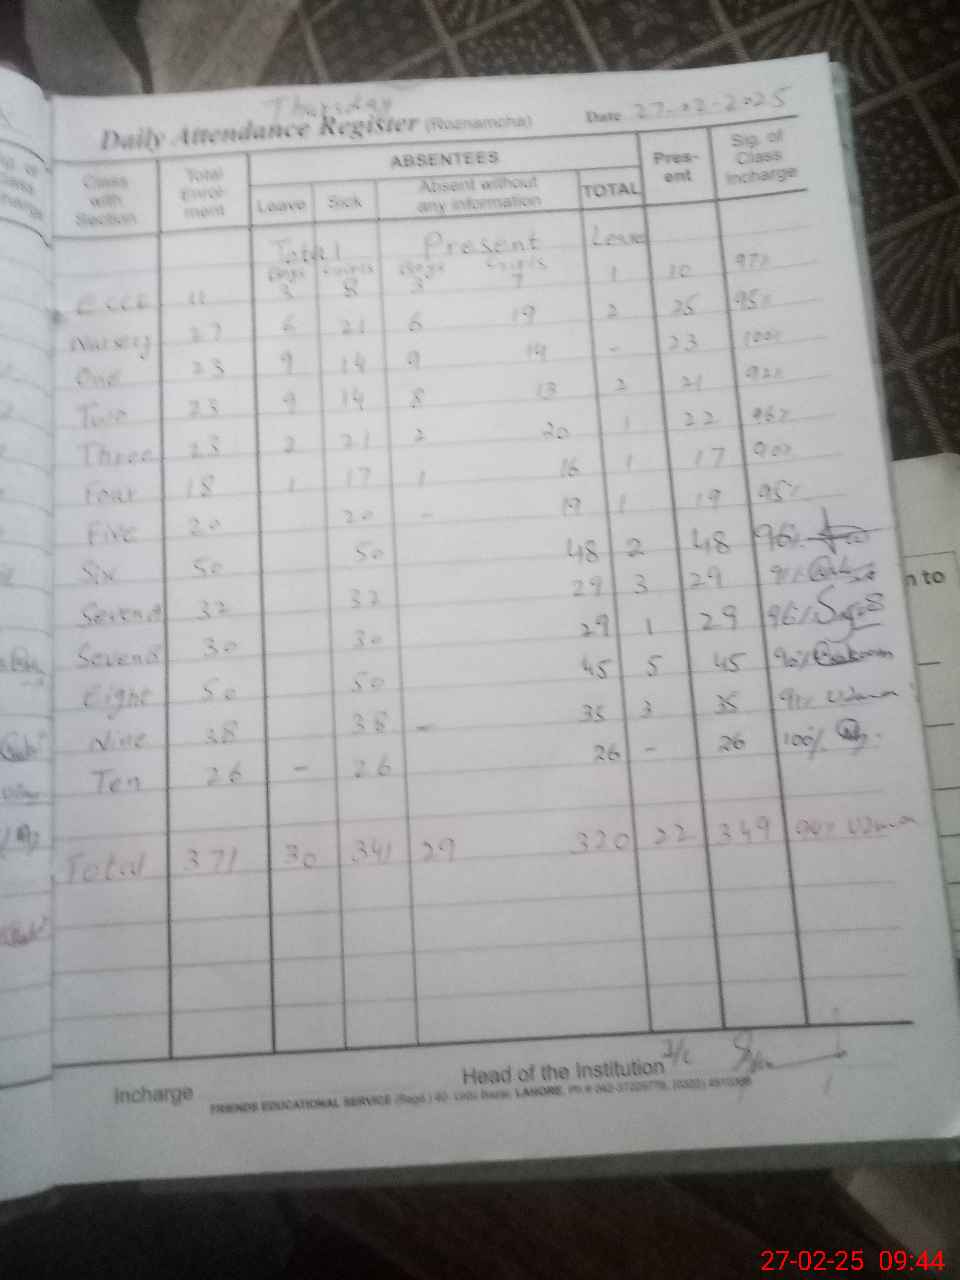 Thursday
Daily Attendance Register (Roznamcha) Date 27-02-2025
Class with Section Total Enrol-ment ABSENTEES Pres-ent Sig. of Class Incharge
Leave Sick Absent without any information TOTAL
Total Present Leave
Boys Girls Boys Girls
ECCE 11 3 8 3 7 1 10 97%
Nursery 27 6 21 6 19 2 25 95%
One 23 9 14 9 14 - 23 100%
Two 23 9 14 8 13 2 21 92%
Three 23 2 21 2 20 1 22 96%
Four 18 1 17 1 16 1 17 90%
Five 20 20 - 19 1 19 95%
Six 50 50 48 2 48 96%
Seven A 32 32 29 3 29 91%
Seven B 30 30 29 1 29 96%
Eight 50 50 45 5 45 90%
Nine 38 38 - 35 3 35 91% Uzma
Ten 26 - 26 26 - 26 100%
Total 371 30 341 29 320 22 349 94% Uzma
Incharge Head of the Institution I/c
FRIENDS EDUCATIONAL SERVICE (Regd.) 40- Urdu Bazar, LAHORE.
n to
27-02-25 09:44